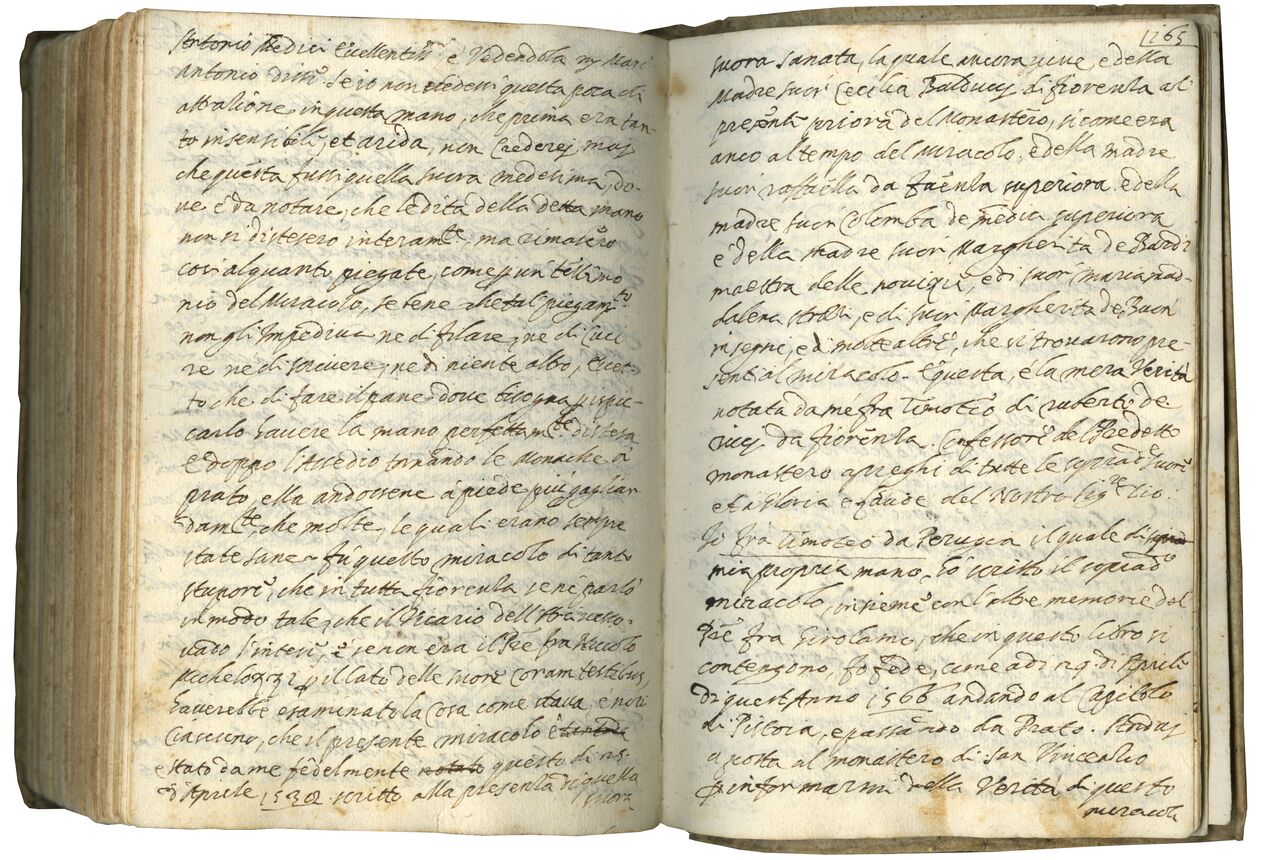 Antonio Medici Eccellentiss.mi, e Vedendola m. Marc
Antonio disse se io non credessi questa poca di
attatione in questa mano, che prima era tan-
to insensibile, et arida, non Crederej maj
che questa fussi quella Suora medesima, do-
ve è da notare, che le dita della detta mano
non si distesero interam.te, ma rimasero
cosi alquanto piegate, come p un testimo
nio del Miracolo, se bene che tal piegam.to
non gli Impediva ne di filare, ne di Cuci
re ne di scrivere, ne di niente altro, Eccet-
to che di fare il pane dove bisogna p ispic-
carlo havere la mano perfettam.te distesa
E doppo l'Assedio tornando le Monache à
prato, ella andossene à piede piu gagliar
dam.te, che molte, le quali erano sempre
state sane. fu questo miracolo di tanto
stupore, che in tutta fiorenza se ne parlò
in modo tale, che il Vicario dell'Arcivesco-
vado l'intese, e se non era il P̃re fra Niccolo
Michelozzi pillato delle suore coram testibus,
haverebbe esaminato la Cosa come stava, e noti
Ciascuno, che il presente miracolo è
stato da me fedelmente notato questo di
d'Aprile 1530 scritto alla presenza di quella
suora
1265
suora Sanata, la quale ancora vive, e della
Madre Suor Cecilia Balducci di fiorenza al
presente priora del Monastero, si come era
anco al tempo del Miracolo, e della madre
suor raffaella da faenza superiora. e della
madre suor Colomba de media superiora
e della Madre suor Margherita de Bardi
maestra delle novizie, e di suor maria mad-
dalena strozzi, e di suor Margherita de Buon
insegne, e di molte altre, che si trovarono pre-
senti al miracolo. E questa, e la mera Verità
notata da me fra Timoteo di ruberto de
ricci da fiorenza. Confessore del Predetto
monastero a preghi di tutte le soprad.e suore
et a Gloria e Laude del Nostro Sig.re Dio.
Io fra Timoteo da Perugia il quale di
mia propria mano ho scritto il soprad.o
miracolo, insieme con l'altre memorie del
P̃re fra Girolamo, che in questo libro si
contengono, fo fede, come adi 29 di Aprile
di quest'Anno 1566 andando al Capitolo
di Pistoia, e passando da Prato. Andaj
a posta al monastero di San Vincentio
p informarmi della Verità di questo
miracolo